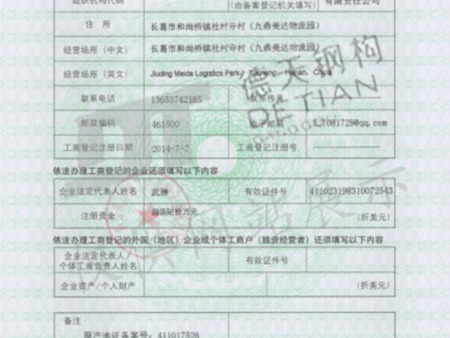 组织机构代码
(由备案登记机关填写) 有限责任公司
住 所 长葛市和尚桥镇杜村寺村（九鼎美达物流园）
经营场所（中文） 长葛市和尚桥镇杜村寺村（九鼎美达物流园）
经营场所（英文） Jiuding Meida Logistics Park
联系电话 13653742185
邮政编码 461500 电子邮箱
工商登记注册日期 2014-7-7 工商登记注册号
德天钢构
DETIAN
依法办理工商登记的企业还须填写以下内容
企业法定代表人姓名 武琳 有效证件号 411023198310072543
注册资金 (折美元)
依法办理工商登记的外国（地区）企业或个体工商户（独资经营者）还须填写以下内容
企业法定代表人/
个体工商负责人姓名 有效证件号
企业资产/个人财产 (折美元)
备注
原产地证备案号：411017526